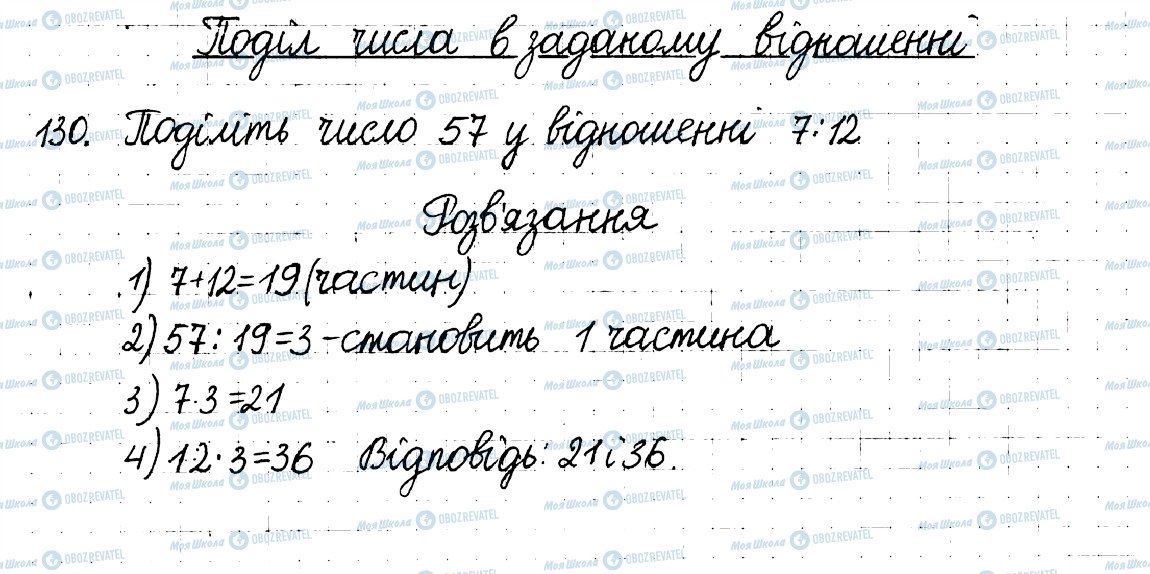 Поділ числа в заданому відношенні
130. Поділіть число 57 у відношенні 7:12
Розв'язання
1) 7+12=19 (частин)
2) 57:19=3 - становить 1 частина
3) 7·3=21
4) 12·3=36 Відповідь: 21 і 36.